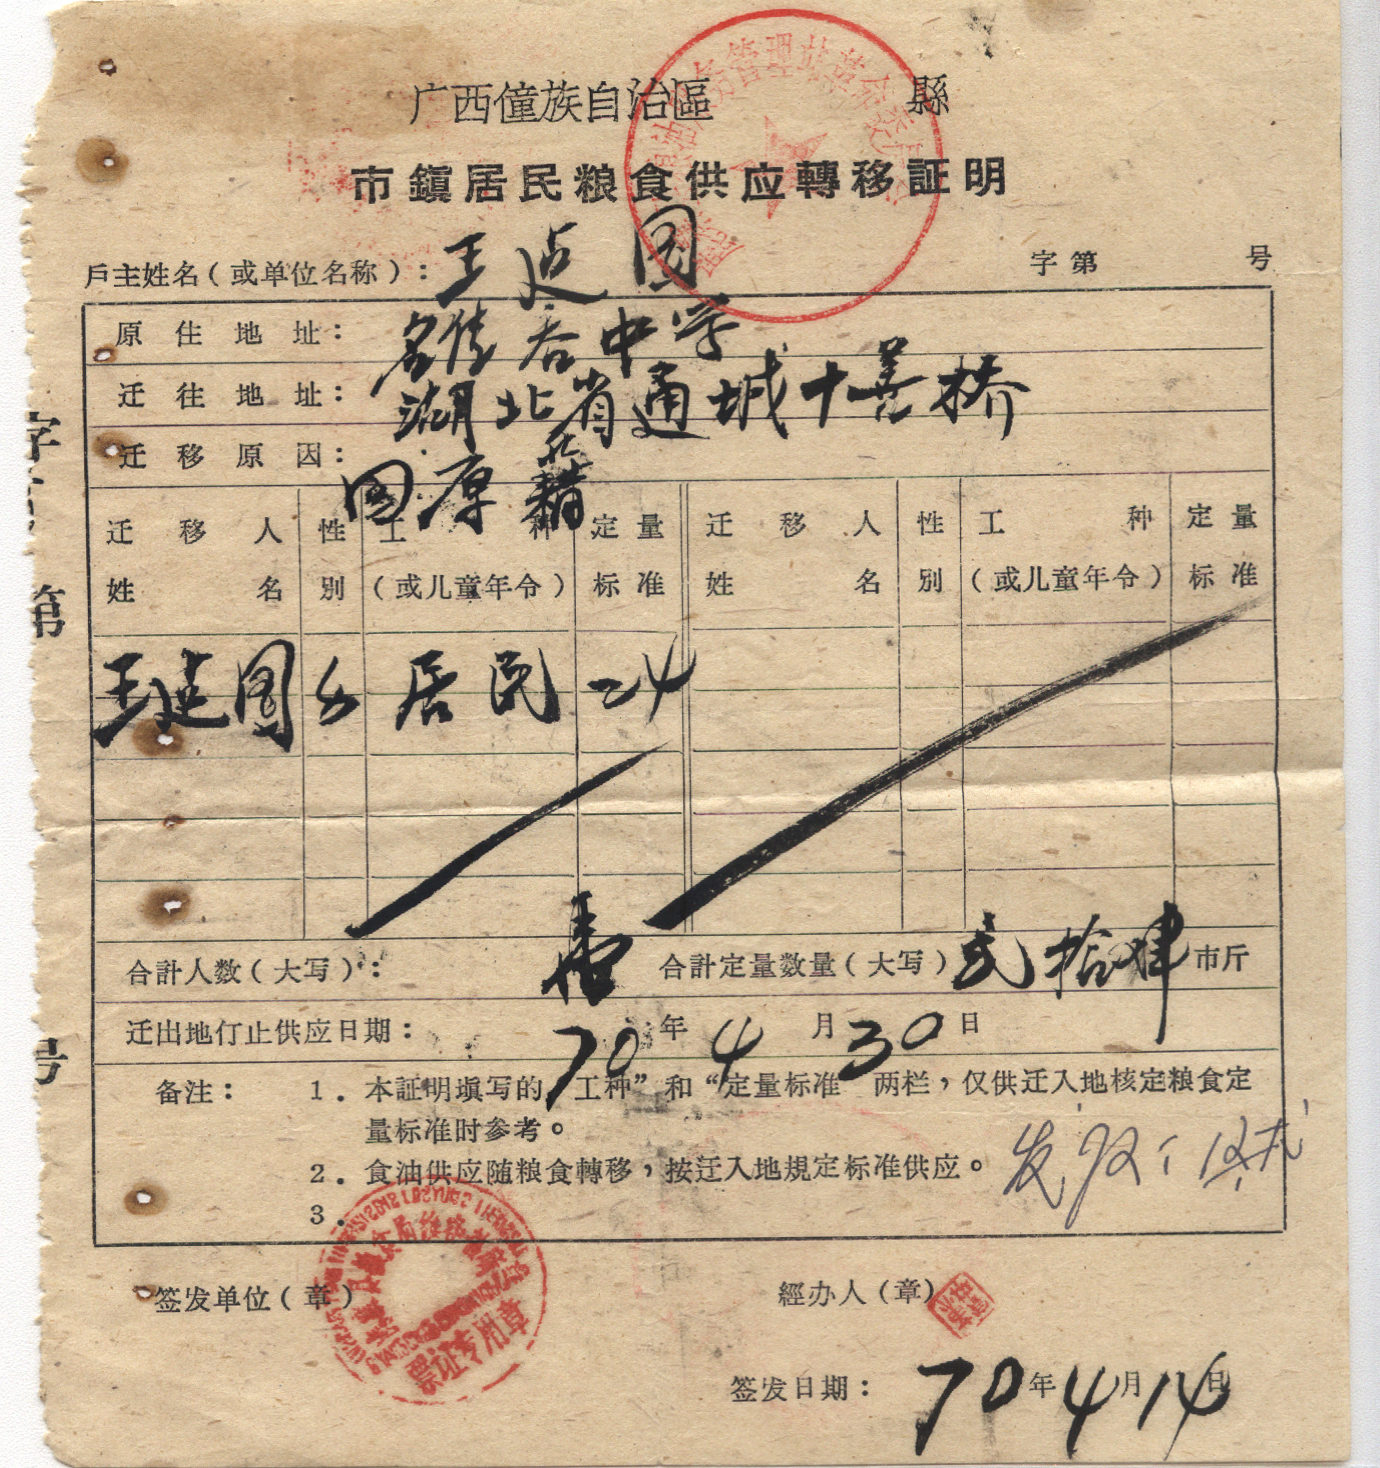 广西僮族自治區 縣
市鎮居民粮食供应轉移証明
戶主姓名(或单位名称): 王 园
字第 号
原住地址: 中学
迁往地址: 湖北省通城十善桥
迁移原因: 回原籍
迁移人姓名 性別 工种(或儿童年令) 定量标准 迁移人姓名 性別 工种(或儿童年令) 定量标准
王 园 女 居民 24
合計人数(大写): 壹 合計定量数量(大写) 弍拾肆 市斤
迁出地仃止供应日期: 70年4月30日
备注: 1. 本証明填写的“工种”和“定量标准”两栏,仅供迁入地核定粮食定
量标准时参考。
2. 食油供应随粮食轉移,按迁入地規定标准供应。
3.
签发单位(章)
經办人(章)
票证专用章
签发日期: 70年4月14日
字第 号